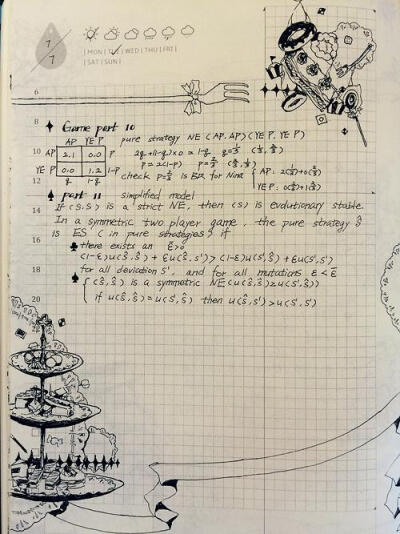 7
7
| MON | TUE | WED | THU | FRI |
| SAT | SUN |
6
8
Game part 10
AP YEP pure strategy NE (AP, AP) (YEP, YEP)
10 AP 2.1 0.0 P 2q+(1-q)×0 = 1-q q=1/3 (1/3, 2/3)
YEP 0.0 1.2 1-P P=2(1-P) P=2/3 (2/3, 1/3)
12 q 1-q check P=2/3 is BR for Nina { AP:
YEP:
part 11 simplified model
14 If (S,S) is a strict NE, then (S) is evolutionary stable
In a symmetric two player game, the pure strategy ŝ
is ES (in pure strategies) if
16 there exists an ε̄>0
(1-ε)u(ŝ,ŝ) + εu(ŝ,s') > (1-ε)u(s',ŝ) + εu(s',s')
18 for all deviation s', and for all mutations ε<ε̄
{ (ŝ,ŝ) is a symmetric NE (u(ŝ,ŝ)≥u(s',ŝ))
20 if u(ŝ,ŝ)=u(s',ŝ) then u(ŝ,s')>u(s',s')